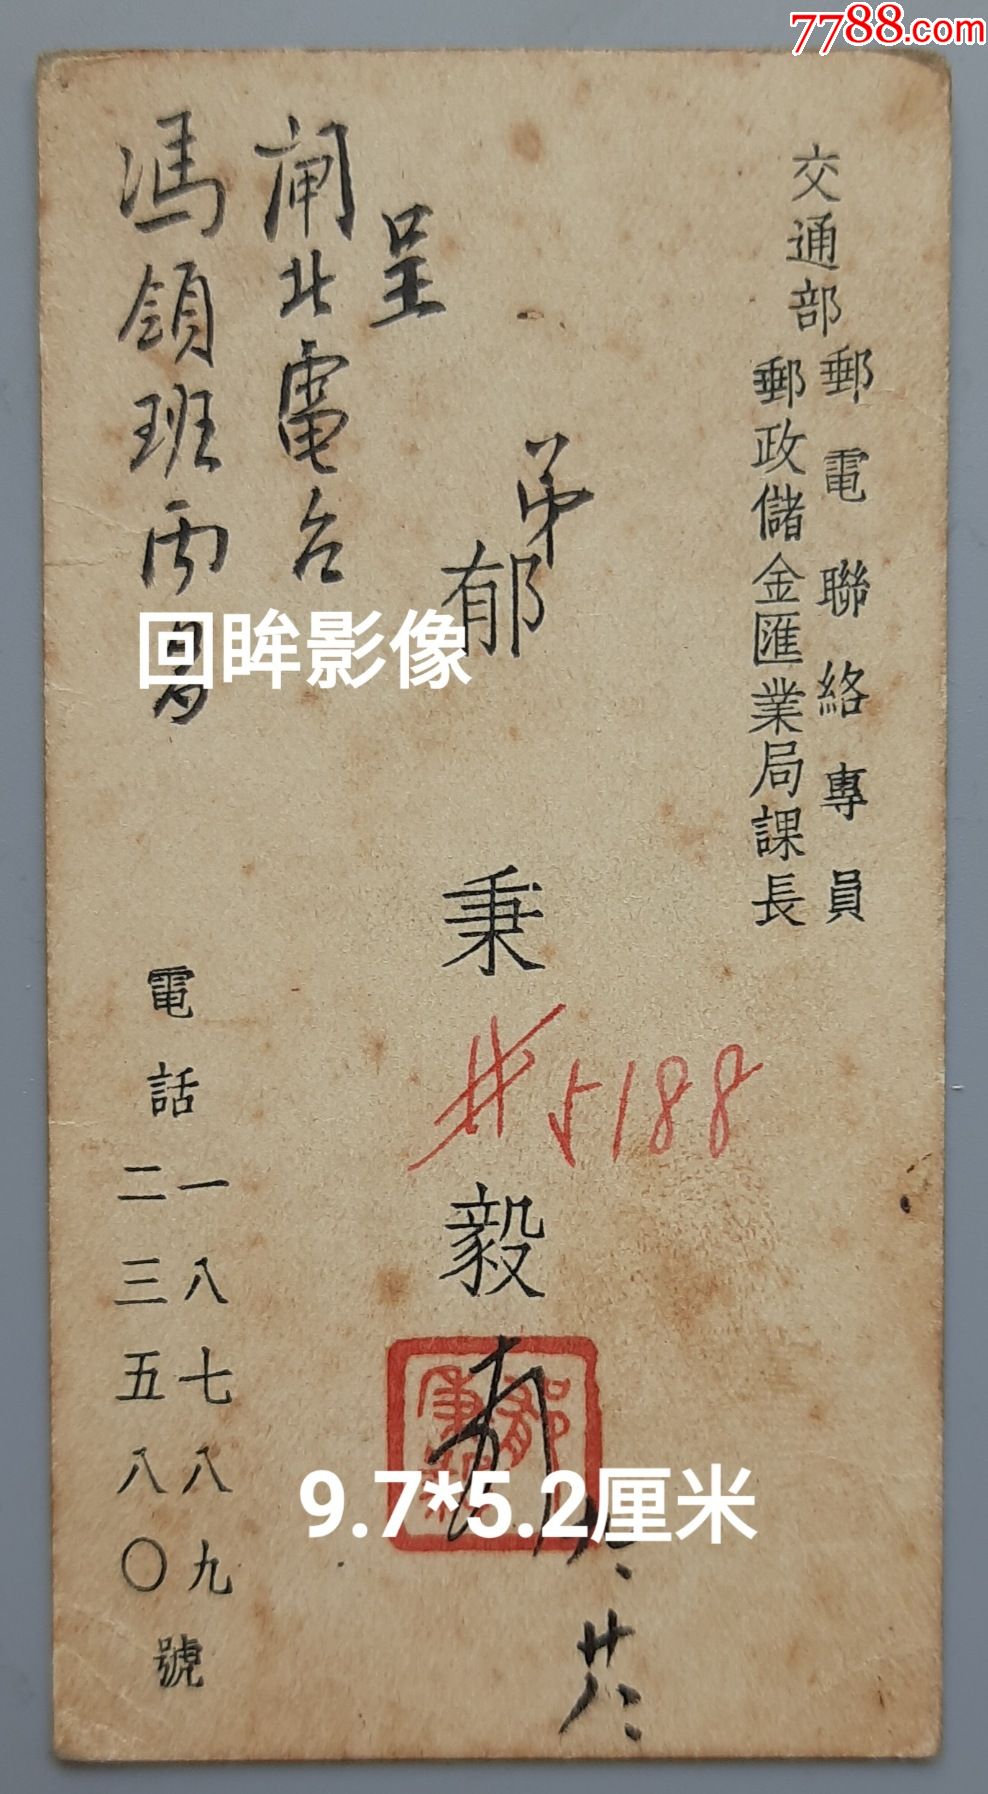 7788.com
交通部
郵電聯絡專員
郵政儲金匯業局課長
弟
郁秉毅
呈
閘北電台
馮領班
電話
一八七八九
二三五八〇
號
5188
回眸影像
9.7*5.2厘米